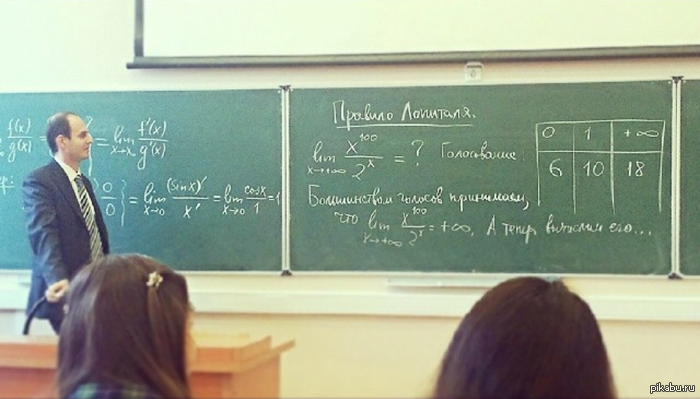 f(x)/g(x) = ? = lim x→x₀ f'(x)/g'(x)
р:
{0/0} = lim x→0 (sin x)'/x' = lim x→0 cos x/1 = 1
Правило Лопиталя.
lim x→+∞ x^100/2^x = ? Голосование:
0 1 +∞
6 10 18
Большинством голосов принимаем,
что lim x→+∞ x^100/2^x = +∞. А теперь вычислим его...
pikabu.ru